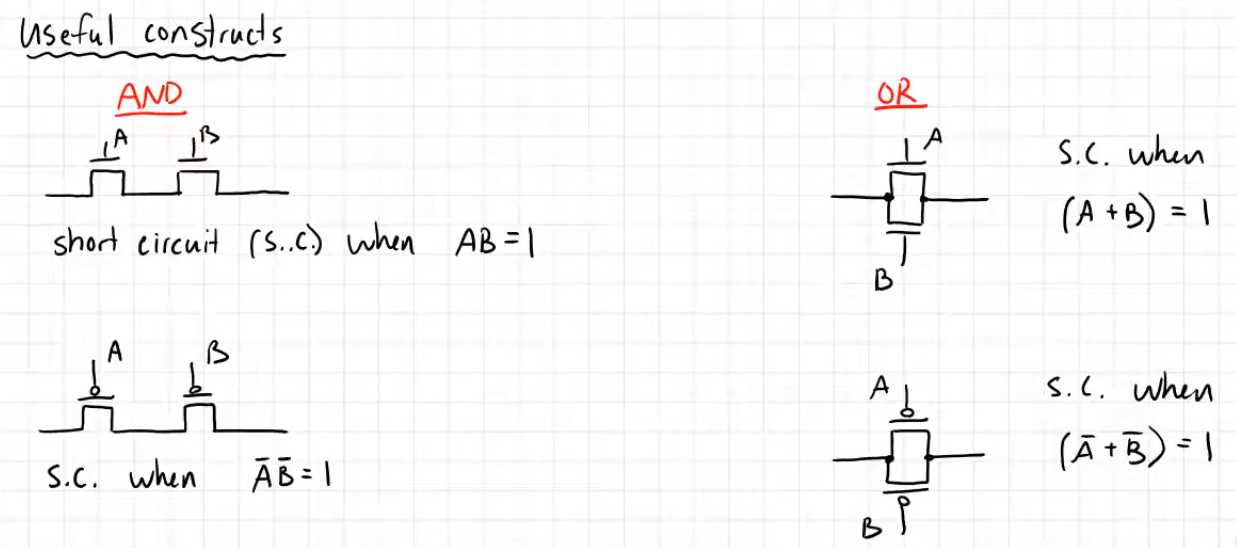 Useful constructs
AND
A B
short circuit (s..c.) when AB = 1
A B
S.C. when A̅ B̅ = 1
OR
A
B
S.C. when
(A + B) = 1
A
B
S.C. when
(A̅ + B̅) = 1